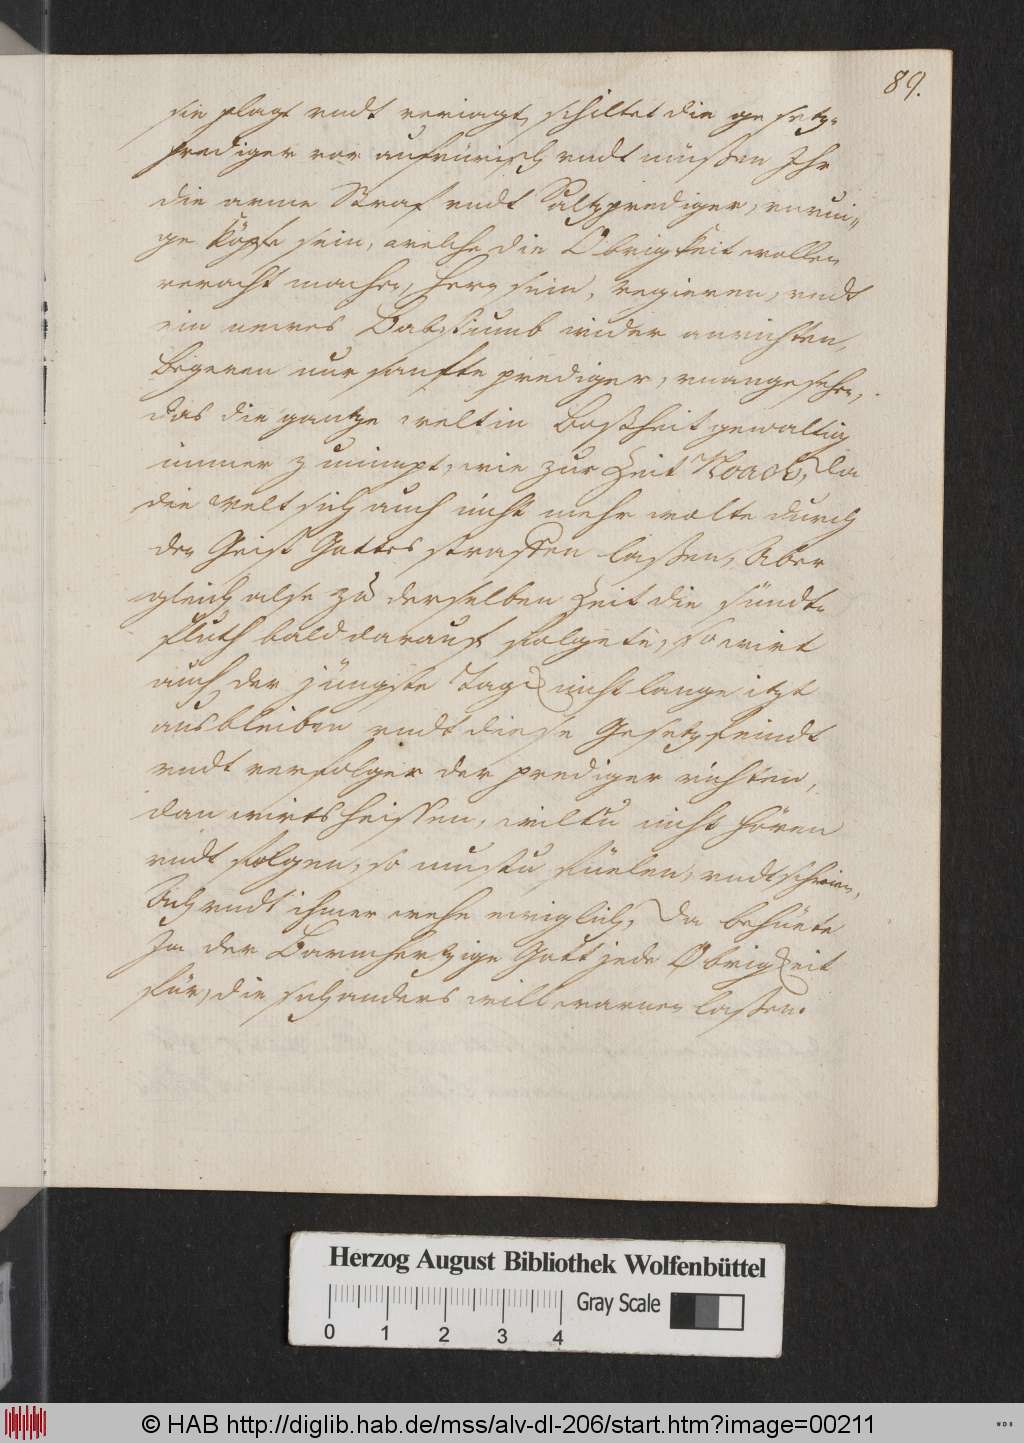 89.
sie plagt undt veriagt, schiltet die gesetz-
prediger vor aufrürisch undt müßen Ihr
die arme Straf undt Saltzprediger, unrui-
ge Köpfe sein, welche die Obrigkeit wollen
veracht machen, Herr sein, Regieren, undt
ein neues Babstumb wider anrichten,
Begeren nur sanfte prediger, unangesehen,
das die gantze welt in Boßheit gewaltig
immer zunimpt, wie zur Zeit Noach, Da
die welt sich auch nicht mehr wolte durch
den Geist Gottes straffen laßen, Aber
gleich alse zu derselben Zeit die sündt-
fluth bald darauf folgete, so wirt
auch der jüngste Tag nicht lange itzt
ausbleiben undt diese Gesetzfeindt
undt verfolger der prediger richten,
dan wirts heissen, wiltu nicht hören
undt folgen, so mustu füelen, undt schreien,
Ach undt immer wehe ewiglich, Da behüete
Ja der Barmhertzige Gott jede Obrigkeit
für, die sich anders will warnen laßen.
Herzog August Bibliothek Wolfenbüttel
Gray Scale
0 1 2 3 4
© HAB http://diglib.hab.de/mss/alv-dl-206/start.htm?image=00211